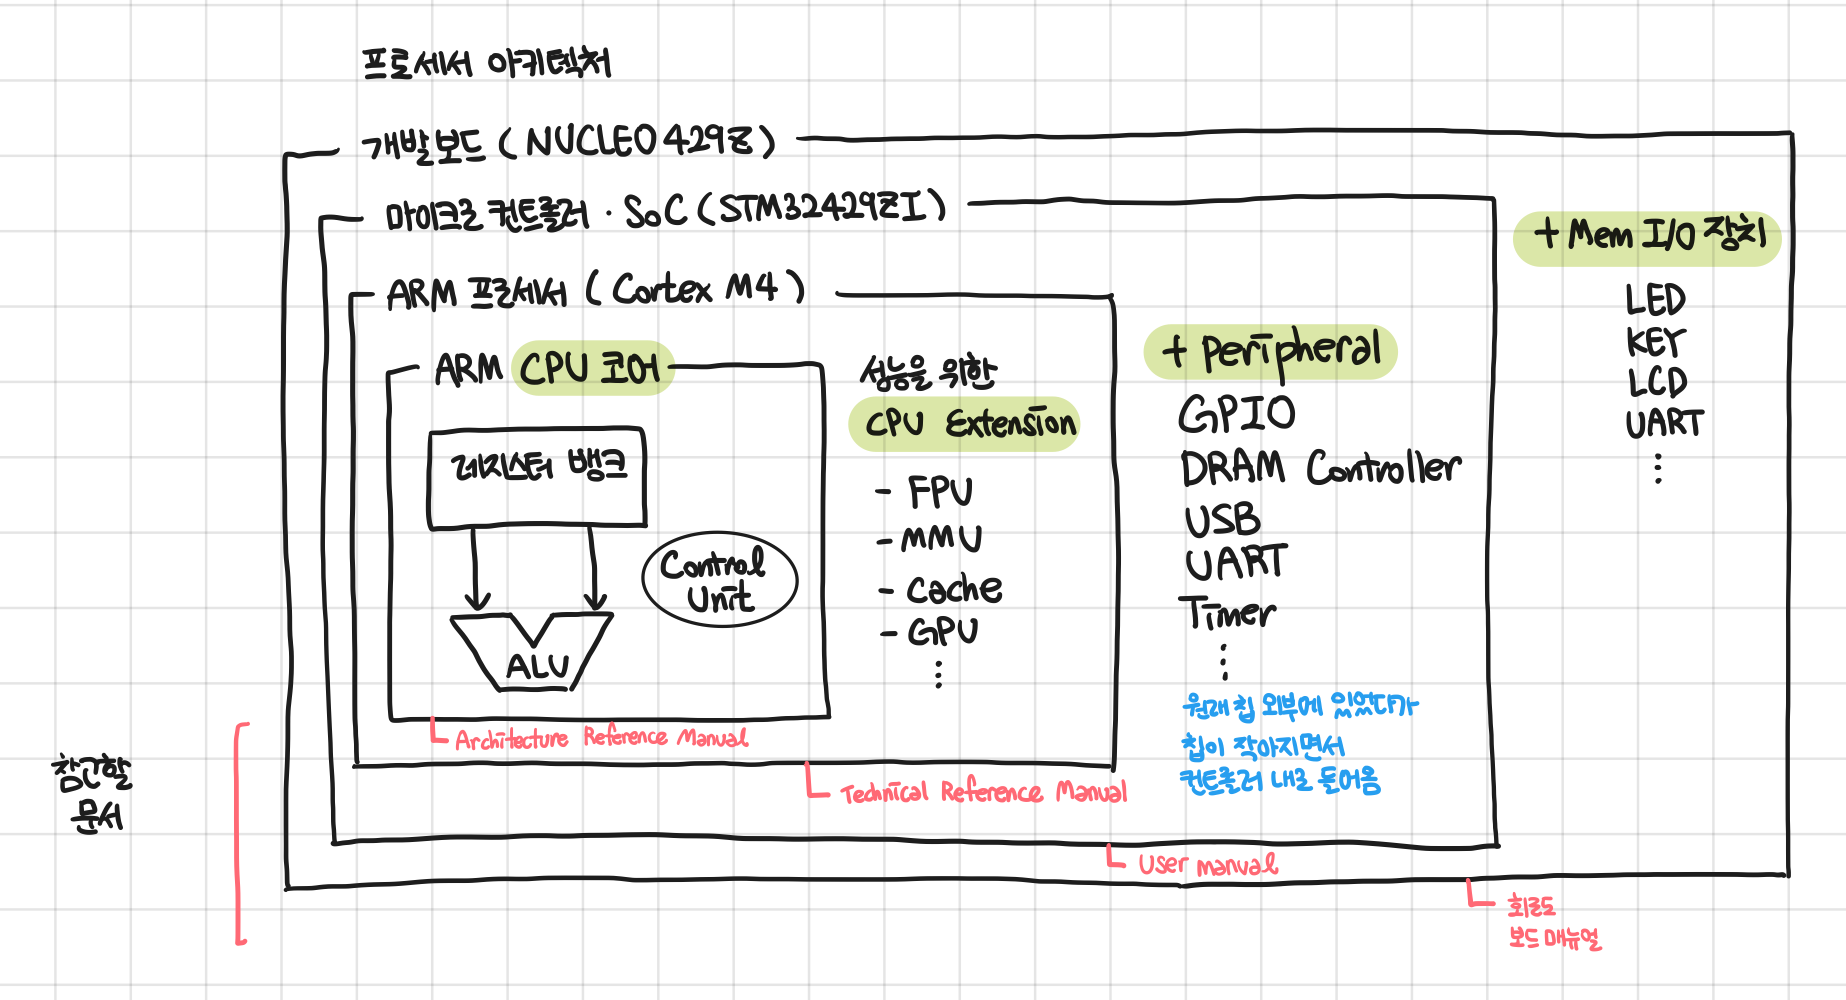 프로세서 아키텍처
개발보드 (NUCLEO 429Z)
마이크로 컨트롤러 · SoC (STM32429ZI)
+ Mem I/O 장치
LED
KEY
LCD
UART
⋮
ARM 프로세서 (Cortex M4)
+ Peripheral
GPIO
DRAM Controller
USB
UART
Timer
⋮
원래 칩 외부에 있었다가
칩이 작아지면서
컨트롤러 내로 들어옴
ARM CPU 코어
성능을 위한
CPU Extension
- FPU
- MMU
- Cache
- GPU
⋮
레지스터 뱅크
Control
Unit
ALU
Architecture Reference Manual
Technical Reference Manual
User manual
회로도
보드 매뉴얼
참고할
문서